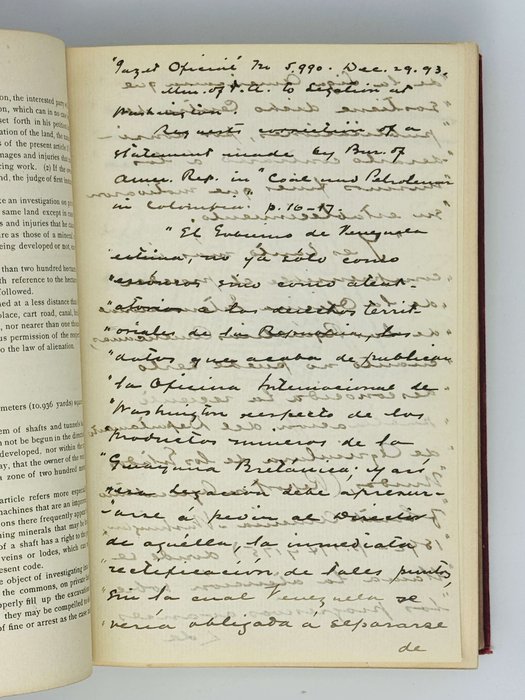 on, the interested party
which can in no case
set forth in his petition
ation of the land, the
s of the present article
mages and injuries that
ing work. (2) If the owner
d, the judge of first
e an investigation on
same land except in case
s and injuries that he
are as those of a mineral
eing developed or not,
than two hundred
th reference to the
followed.
ned at a less distance than
place, cart road, canal,
r, nor nearer than one
us permission of the
to the law of alienation.
meters (10,936 yards) square
em of shafts and tunnels
n not be begun in the
developed, nor within the
ay, that the owner of the
a zone of two hundred
rticle refers more
machines that are an
ons there frequently
ning minerals that may be
of a shaft has a right to the
veins or lodes, which
cent code.
e object of investigating
the commons, on private
perly fill up the
they may be compelled to
of fine or arrest as the case
"Gazet Oficial No 5,990. Dec. 29. 93.
Min. of F.A. to Legation at
Washington.
Requests correction of a
statement made by Bur. of
Amer. Rep. in "Coal and Petroleum
in Colombia. p. 16-17.
"El Gobierno de Venezuela
estima, no ya sólo como
"erróneos sino como atent-
"atorios a los derechos territ-
"oriales de la República, los
"datos que acaba de publicar
"la Oficina Internacional de
"Washington respecto de los
"productos mineros de la
"Guayana Britanica; y así
Legacion debe apresur-
"arse á pedir al Director
"de aquélla, la inmediata
"rectificación de tales puntos,
"sin la cual Venezuela se
"vería obligada a separarse
de